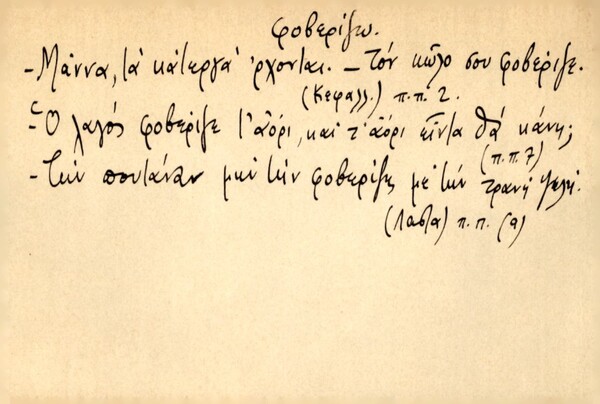 φοβερίζω.
- Μάννα, τὰ κάτεργα ἔρχονται. - Τὸν κῶλο σου φοβέριζε.
(Κεφαλλ.) π.π. 2.
- Ὁ λαγός φοβέριζε τ' ἀόρι, καὶ τ' ἀόρι εἶντα θά κάνῃ;
(π.π. 7)
- Τὴν πουτάναν μὴν τὴν φοβερίζῃς μὲ τὴν τρανὴ ψωλή.
(Λάστα) π.π. (9)